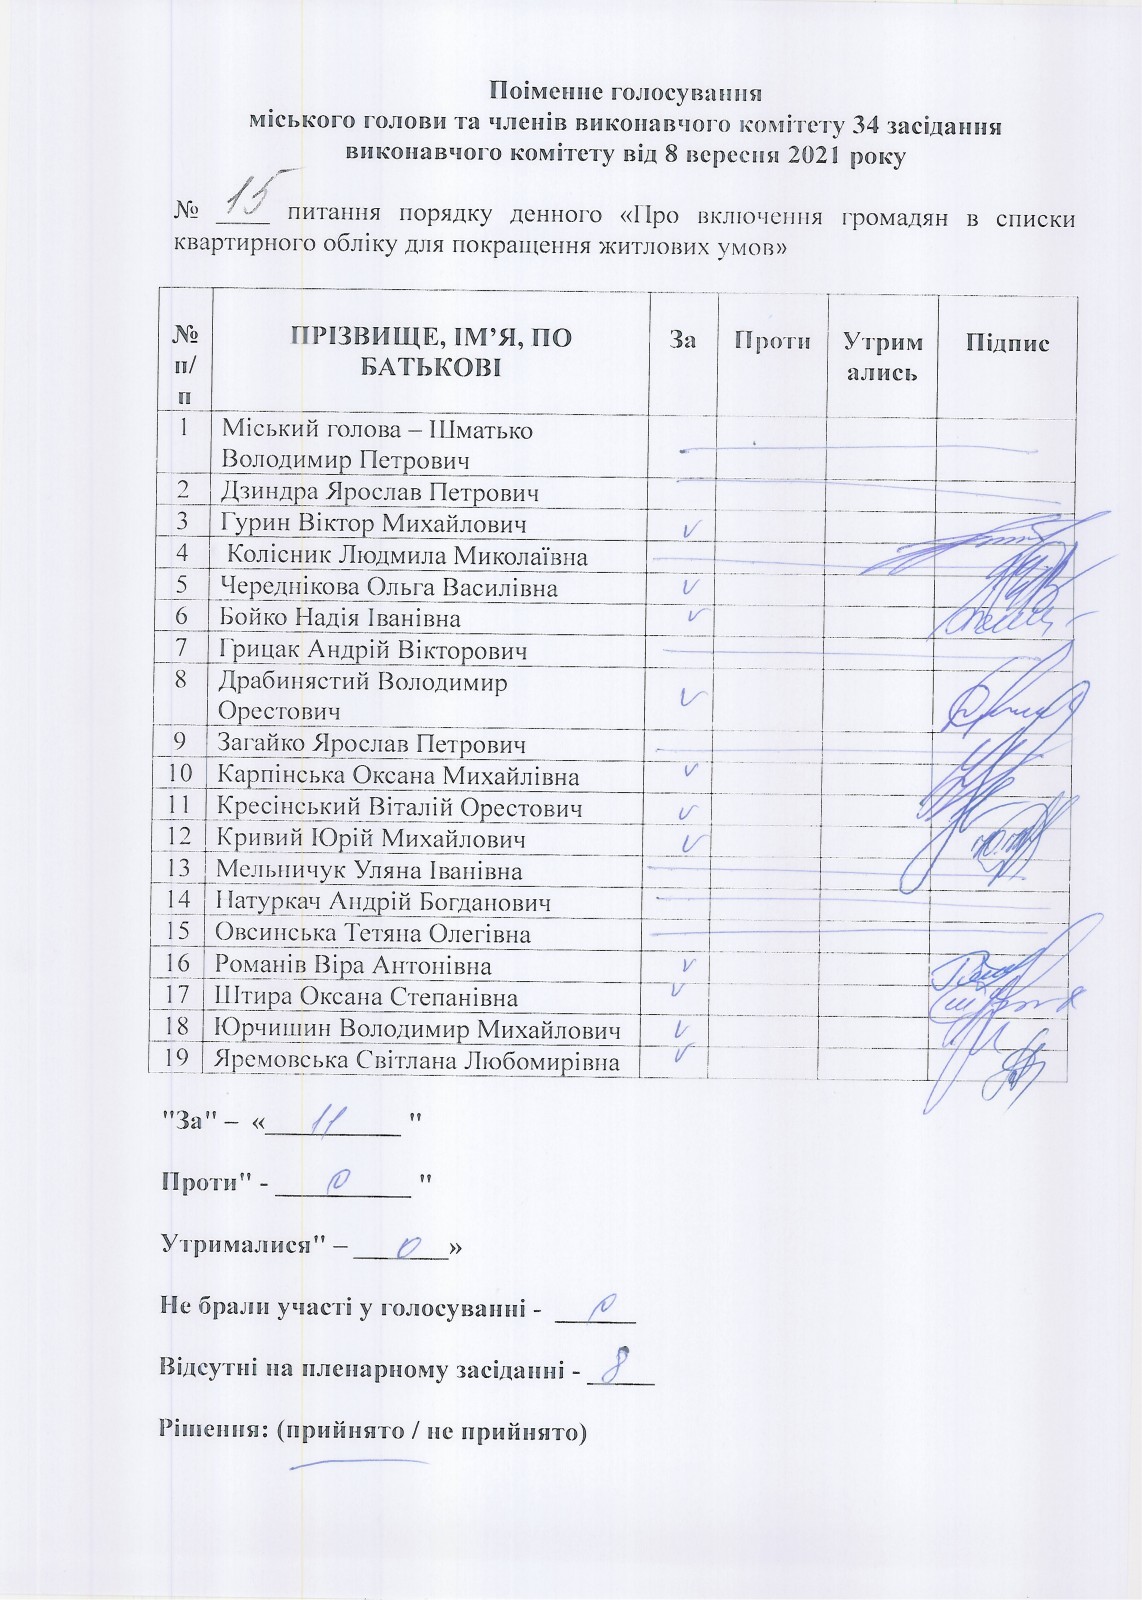 Поіменне голосування
міського голови та членів виконавчого комітету 34 засідання
виконавчого комітету від 8 вересня 2021 року
№ 15 питання порядку денного «Про включення громадян в списки
квартирного обліку для покращення житлових умов»
№ п/п ПРІЗВИЩЕ, ІМ’Я, ПО БАТЬКОВІ За Проти Утримались Підпис
1 Міський голова – Шматько
Володимир Петрович
2 Дзиндра Ярослав Петрович
3 Гурин Віктор Михайлович ✓
4 Колісник Людмила Миколаївна
5 Череднікова Ольга Василівна ✓
6 Бойко Надія Іванівна ✓
7 Грицак Андрій Вікторович
8 Драбинястий Володимир
Орестович ✓
9 Загайко Ярослав Петрович
10 Карпінська Оксана Михайлівна ✓
11 Кресінський Віталій Орестович ✓
12 Кривий Юрій Михайлович ✓
13 Мельничук Уляна Іванівна
14 Натуркач Андрій Богданович
15 Овсинська Тетяна Олегівна
16 Романів Віра Антонівна ✓
17 Штира Оксана Степанівна ✓
18 Юрчишин Володимир Михайлович ✓
19 Яремовська Світлана Любомирівна ✓
"За" – « 11 "
Проти" - 0 "
Утрималися" – 0 »
Не брали участі у голосуванні - 0
Відсутні на пленарному засіданні - 8
Рішення: (прийнято / не прийнято)